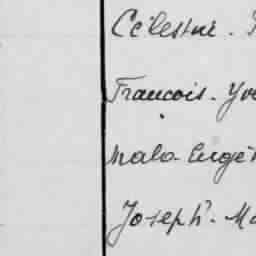 Célestine.
Francois. Yv
Malo. Eugè
Joseph. Ma